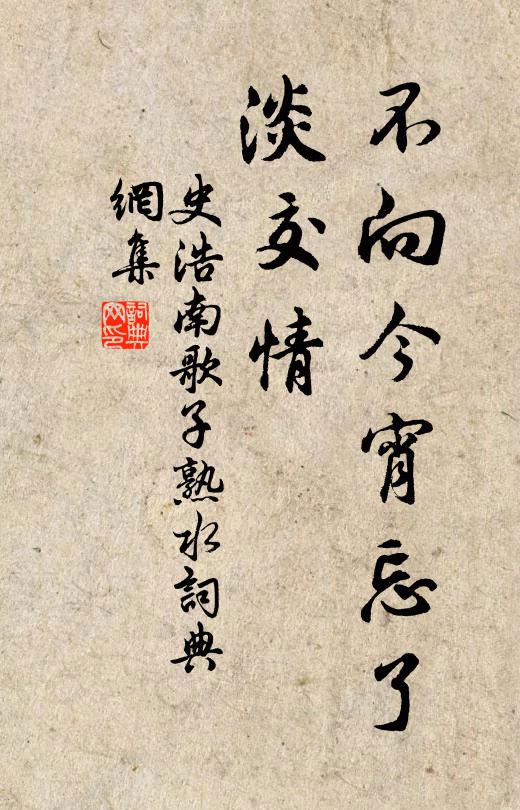 不向今宵忘了
淡交情
史浩南歌子熟水詞典
網集
詞典
网印